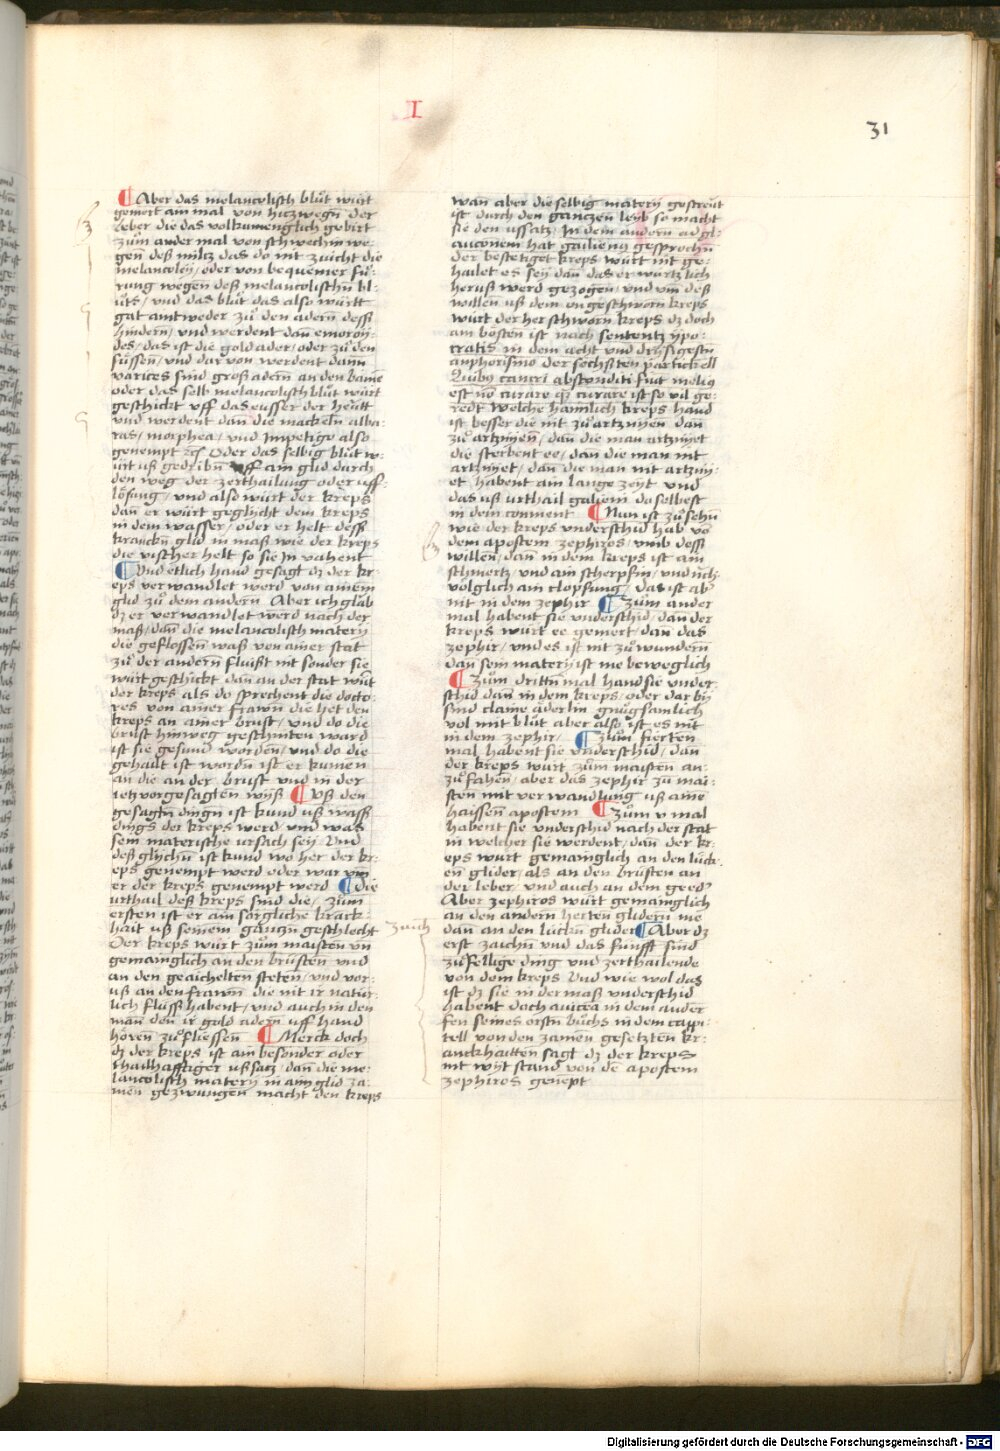 I
31
¶ Aber das melancolisch blůt würt
gemert ain mal von hitz wegñ der
leber die das volkumenglich gebirt
zům ander mal von schwechin we¬
gen deß miltz das do nit zücht die
melancoley / oder von bequemer fü¬
rung wegen deß melancolischñ bl¬
ůts / vnd das blůt das also württ
gat aintweder zů den adern dess
hindern / vnd werdent dañ emoroy¬
des / das ist die gold ader / oder zů den
füssen / vnd dar von werdent dann
varices sind groß adern an den bainē
oder das selb melancolisch blůt würt
geschickt vff das eusser der heutt
vnd werdent dañ die mackeln alba¬
ras / morphea / vnd Impetige also
genempt Oder das selbig blůt w¬
ürt uß getribñ vff ain glid durch
den weg der zerthailung oder uff¬
lösung / vnd also würt der kreps
dañ er würt geglycht dem kreps
in dem wasser / oder er helt dess
kranckñ glid in maß wie der kreps
die vischer helt so sie in vahent
¶ Vnd etlich hand gesagt dz der kr¬
eps verwandlet werd von ainem
glid zů dem andern Aber ich glab
dz er verwandlet werd nach der
maß / dañ die melancolisch matery
die geflossen was von ainer stat
zů der andern fluißt nit sonder sie
würt geschickt dañ an der stat wůt
der kreps als do sprechent die docto¬
res von ainer frawñ die het den
kreps an ainer brust / vnd do die
brust hinweg geschniten ward
ist sie gesund worden / vnd do die
gehailt ist wordñ ist er kumen
an die an der brust vnd in der
ietz vorgesagten wyß ¶ Vß den
gesagtñ dingñ ist kund uß wass
dings der kreps werd vnd was
sein materische ursach sey Vnd
deß glychñ ist kund wo her der kr¬
eps genempt werd oder war vm
er der kreps genempt werd ¶ Die
urthail deß kreps sind die / zům
ersten ist er ain sorgliche kranck¬
hait uß seinem gantzñ geschlecht
Der kreps würt zům maisten vñ
gemainglich an den brüsten vnd
an den geaichelten steten / vnd vor¬
uß an den frawñ die nit ir natür¬
lich flüss habent / vnd auch in den
man den ir gold adern uff hand
hören zů fliessen ¶ Merck doch
dz der kreps ist ain besonder oder
thailhafftiger ußsatz / dañ die me¬
lancolisch matery in ain glid za¬
men gezwungen macht den kreps
wan aber die selbig matery gestreut
ist durch den gantzen leyb so macht
sie den ussatz / In dem andern ad gl¬
auconem hat galienus gesprochñ
der bestetiget kreps würt nit ge¬
hailet es sey dañ das er würtzlich
heruß werd gezogen / vnd vm deß
willen uß dem ongeschworn kreps
würt der herschworn kreps dz doch
am bösten ist nach sententz ypo¬
cratis in dem acht vnd drysigestñ
amphorismo der sechsten partickell
Quibus cancri absconditi fiut melius
est nō curare qz curare ist so vil ge¬
redt Welche haimlich kreps hand
ist besser die nit zů artznyen dañ
zů artznyen / dañ die man artznyet
die sterbent ee / dañ die man nit
artznyet / dañ die man nit artzny¬
et habent ain lange zeyt vnd
das uß urthail galieni do selbest
in dem comment ¶ Nun ist zů sehñ
wie der kreps vnderschid hab vō
dem apostem zephiros / vmb dess
willen / dañ in dem kreps ist ain
schmertz / vnd ain scherpfin / vnd nch
volglich ain clopfung / das ist ab'
nit in dem zephir ¶ Zům ander
mal habent sie vnderschid / dañ der
kreps würt ee gemert / dañ das
zephir / vnd es ist nit zů wundern
dañ sein matery ist me beweglich
¶ Zům drittñ mal hand sie vnder¬
schid dañ in dem kreps / oder dar by
sind claine äderlin gnůgsamlich
vol mit blůt aber also ist es nit
in dem zephir / ¶ Zům fierten
mal habent sie vnderschid / dañ
der kreps würt zům maisten an¬
zů fahen / aber das zephir zů mai¬
sten mit verwandlung uß aine
haissen apostem ¶ Zům v mal
habent sie vnderschid nach der stat
in welcher sie werdent / dañ der kr¬
eps würt gemainglich an den lück¬
en glider / als an den brüsten an
der leber / vnd auch an dem geed'
Aber zephiros würt gemainglich
an den andern herten glidern me
dañ an den lückñ glider ¶ Aber dz
erst zaichñ vnd das fünfft sind
zůfellige ding vnd zerthailende
von dem kreps Vnd wie wol das
ist dz sie in der maß vnderschid
habent doch auicea in dem ander
fen seines erstñ bůchs in dem cappi¬
tell von den zamen gesetzten kr¬
anckhaitten sagt dz der kreps
nit wyt stand von de apostem
zephiros genept
zaich
Digitalisierung gefördert durch die Deutsche Forschungsgemeinschaft - DFG